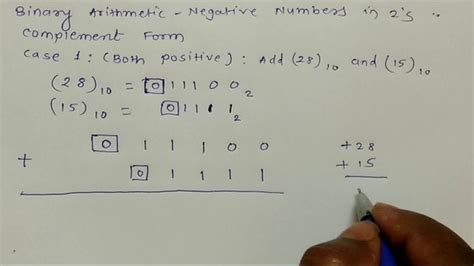 Binary Arithmetic - Negative Numbers in 2's
Complement Form
Case 1: (Both positive): Add (28)10 and (15)10
(28)10 = 0 1 1 1 0 0 2
(15)10 = 0 1 1 1 1 2
0 1 1 1 0 0 +28
+ 0 1 1 1 1 +15